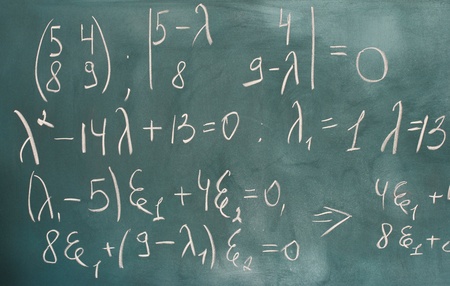 (5 4
8 9) ; |5-λ 4
8 9-λ| = 0
λ² - 14λ + 13 = 0 . λ₁ = 1 λ = 13
(λ₁ - 5) ξ₁ + 4ξ₂ = 0, ⇒ 4ξ₁ +
8ξ₁ + (9 - λ₁) ξ₂ = 0 8ξ₁ +